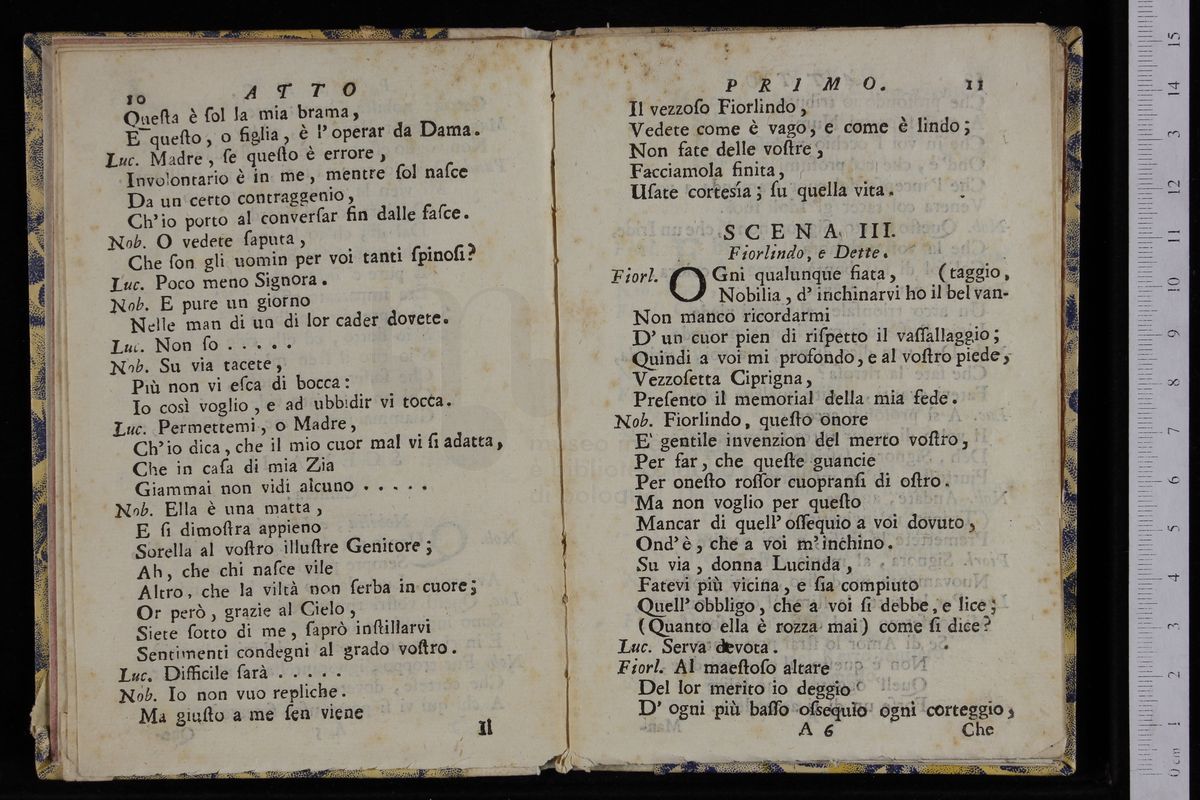 10 ATTO
Queſta è ſol la mia brama,
E queſto, o figlia, è l'operar da Dama.
Luc. Madre, ſe queſto è errore,
Involontario è in me, mentre ſol naſce
Da un certo contraggenio,
Ch'io porto al converſar fin dalle faſce.
Nob. O vedete ſaputa,
Che ſon gli uomin per voi tanti ſpinoſi?
Luc. Poco meno Signora.
Nob. E pure un giorno
Nelle man di un di lor cader dovete.
Luc. Non ſo . . . . .
Nob. Su via tacete,
Più non vi eſca di bocca:
Io così voglio, e ad ubbidir vi tocca.
Luc. Permettemi, o Madre,
Ch'io dica, che il mio cuor mal vi ſi adatta,
Che in caſa di mia Zia
Giammai non vidi alcuno . . . . .
Nob. Ella è una matta,
E ſi dimoſtra appieno
Sorella al voſtro illuſtre Genitore;
Ah, che chi naſce vile
Altro, che la viltà non ſerba in cuore;
Or però, grazie al Cielo,
Siete ſotto di me, ſaprò inſtillarvi
Sentimenti condegni al grado voſtro.
Luc. Difficile ſarà . . . . .
Nob. Io non vuo repliche.
Ma giuſto a me ſen viene
Il
PRIMO. 11
Il vezzoſo Fiorlindo,
Vedete come è vago, e come è lindo;
Non fate delle voſtre,
Facciamola finita,
Uſate cortesía; ſu quella vita.
SCENA III.
Fiorlindo, e Dette.
Fiorl. OGni qualunque fiata, (taggio,
Nobilia, d' inchinarvi ho il bel van-
Non manco ricordarmi
D' un cuor pien di riſpetto il vaſſallaggio;
Quindi a voi mi profondo, e al voſtro piede,
Vezzoſetta Ciprigna,
Preſento il memorial della mia fede.
Nob. Fiorlindo, queſto onore
E' gentile invenzion del merto voſtro,
Per far, che queſte guancie
Per oneſto roſſor cuopranſi di oſtro.
Ma non voglio per queſto
Mancar di quell' oſſequio a voi dovuto,
Ond' è, che a voi m' inchino.
Su via, donna Lucinda,
Fatevi più vicina, e ſia compiuto
Quell' obbligo, che a voi ſi debbe, e lice;
(Quanto ella è rozza mai) come ſi dice?
Luc. Serva devota.
Fiorl. Al maeſtoſo altare
Del lor merito io deggio
D' ogni più baſſo oſsequio ogni corteggio,
A 6 Che